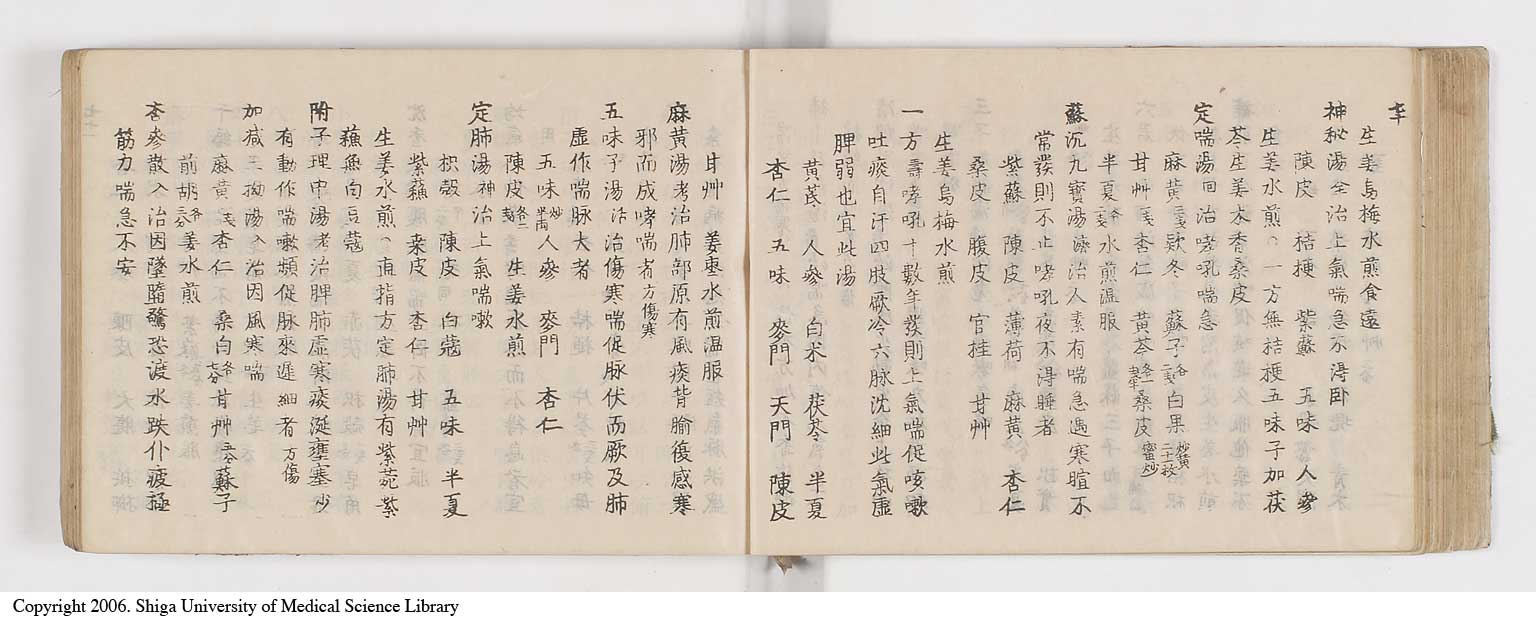 生姜烏梅水煎食遠
神秘湯全治上氣喘急不淂卧
陳皮 桔梗 紫蘇 五味 人參
生姜水煎 一方無拮梗五味子加茯
苓生姜木香桑皮
定喘湯回治哮吼喘急
麻黄三戔欵冬 蘇子各二戔白果炒黄二十枚
甘艸一戔杏仁 黄芩各一戔半桑皮蜜炒
半夏各三戔水煎温服
蘇沉九寳湯済治人素有喘急遇寒暄不
常發則不止哮吼夜不淂睡者
紫蘇 陳皮 薄荷 麻黄 杏仁
桑皮 腹皮 官桂 甘艸
生姜烏梅水煎
一方壽哮吼十數年發則上氣喘促咳嗽
吐痰自汗四肢厥冷六脉沈細此氣虚
脾弱也宜此湯
黄芪 人參 白术 茯苓 半夏
杏仁 五味 麥門 天門 陳皮
甘艸 姜棗水煎温服
麻黄湯老治肺部原有風痰背腧復感寒
邪而成哮喘者方傷寒
五味子湯治傷寒喘促脉伏而厥及肺
虚作喘脉大者
五味炒半両人參 麥門 杏仁
陳皮各二戔 生姜水煎
定肺湯神治上氣喘嗽
枳殻 陳皮 白蔲 五味 半夏
紫蘓 桒皮 杏仁 甘艸
生姜水煎 直指方定肺湯有紫菀紫
蘓無白豆蔲
附子理中湯老治脾肺虚寒痰涎壅塞少
有動作喘嗽頻促脉來遲細者方傷
加减三拗湯入治因風寒喘
麻黄二戔杏仁 桑白各七分甘艸五分蘇子
前胡各三分姜水煎
杏參散入治因墜墮驚恐渡水跌仆疲極
筋力喘急不安
Copyright 2006. Shiga University of Medical Science Library